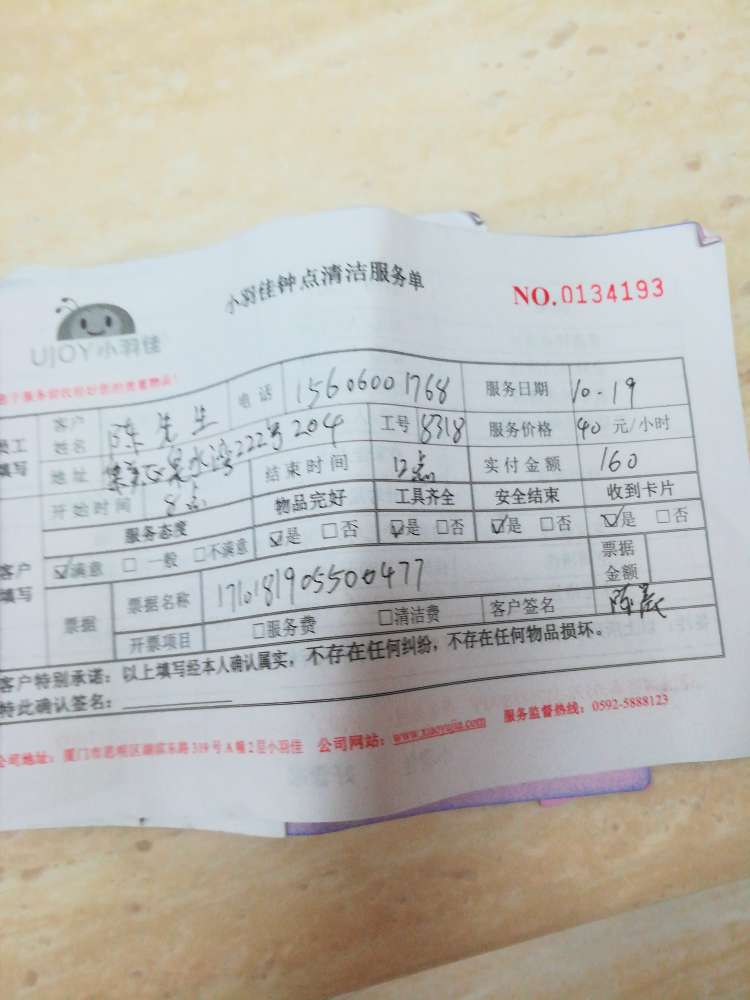 小羽佳钟点清洁服务单
NO.0134193
UJOY小羽佳
员工填写
客户姓名 陈先生 电话 15606001768 服务日期 10-19
地址 222号204 工号 8318 服务价格 40 元/小时
开始时间 8点 结束时间 12点 实付金额 160
服务态度 物品完好 工具齐全 安全结束 收到卡片
客户填写
☑满意 □一般 □不满意 ☑是 □否 ☑是 □否 ☑是 □否 ☑是 □否
票据 票据名称 1710181905500477 票据金额
开票项目 □服务费 □清洁费 客户签名 陈
客户特别承诺：以上填写经本人确认属实，不存在任何纠纷，不存在任何物品损坏。
特此确认签名：
公司地址：厦门市思明区湖滨东路319号A幢2层小羽佳 公司网站：www.xiaoyujia.com 服务监督热线：0592-5888123